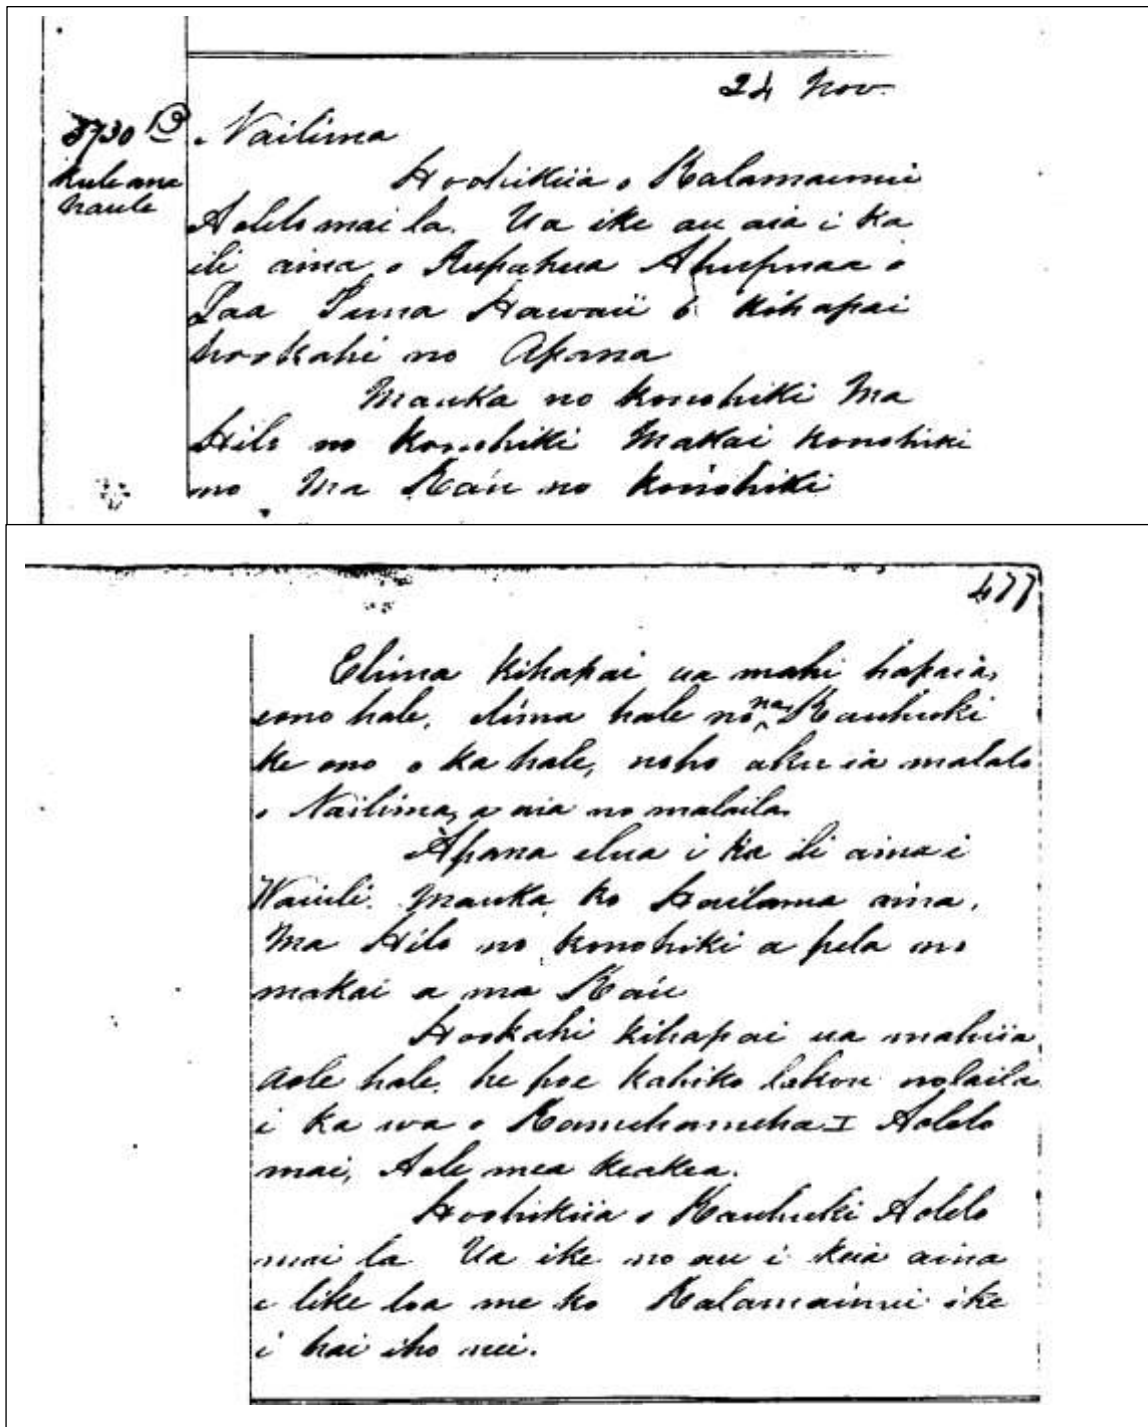 24 Nov.
8730 B
Kuleana
haule
. Nailima
Hoohikiia o Kalamainui
Aolelo mai la. Ua ike au aia i ka
ili aina o Kupahua Ahupuaa o
Puna Hawaii 6 kihapai
hookahi no Apana
Mauka no konohiki Ma
Hilo no konohiki Makai konohiki
no Ma Kau no konohiki
477
Elima kihapai ua mahi hapaia,
eono hale, elima hale no na Kauhuki
ke ono o ka hale, noho aku ia malalo
o Nailima, a aia no malaila.
Apana elua i ka ili aina i
Waiuli. Mauka ko Hailama aina,
Ma Hilo no konohiki a pela no
makai a ma Kau
Hookahi kihapai ua mahiia
aole hale, he poe kahiko lakou nolaila
i ka wa o Kamehameha I Aolelo
mai, Aole mea keakea.
Hoohikiia o Kauhuki Aolelo
mai la Ua ike no au i keia aina
e like loa me ko Kalamainui ike
i hai iho nei.